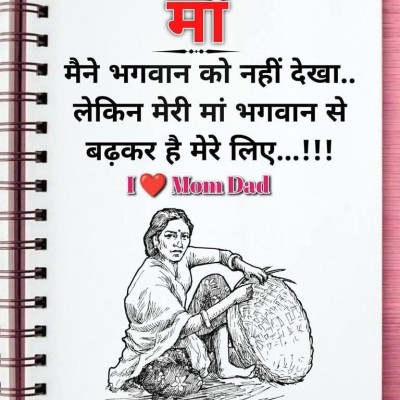 मां
मैने भगवान को नहीं देखा..
लेकिन मेरी मां भगवान से
बढ़कर है मेरे लिए...!!!
I ❤️ Mom Dad